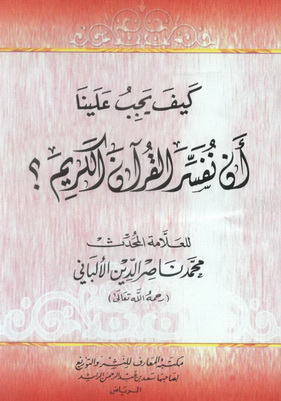 كَيفَ يَجِبُ عَلَينَا
أَن نُفَسِّرَ القُرآنَ الكَرِيمَ ؟
للعلّامة المحُدّث
محمّد ناصر الدّين الألباني
(رحمهُ اللّه تعالى)
مكتبة المعارف للنشر والتوزيع
لصاحبها سعد بن عبد الرحمن الراشد
الريَاض